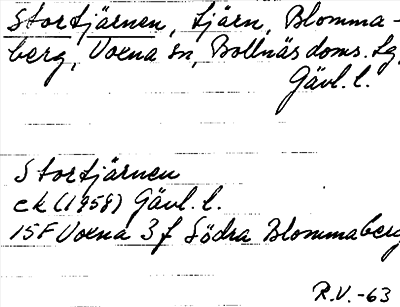 Stortjärnen, tjärn, Blomma-
berg, Voxna sn, Bollnäs doms. tg,
Gävl. l.
Stortjärnen
ek (1958) Gävl. l.
15F Voxna 3f Södra Blommaberg
R.V. -63